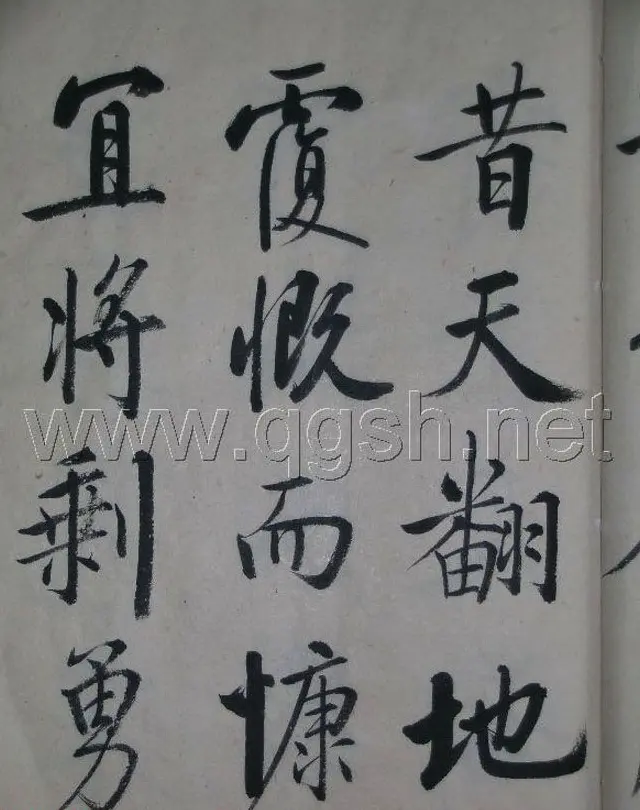 昔天翻地
覆慨而慷
宜将剩勇
www.qgsh.net